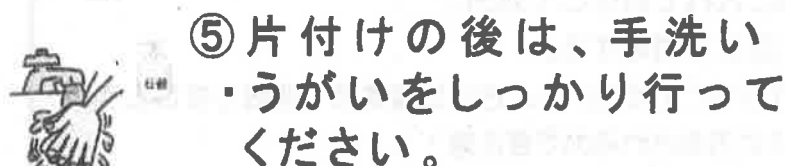 ⑤片付けの後は、手洗い
・うがいをしっかり行って
ください。
石鹸